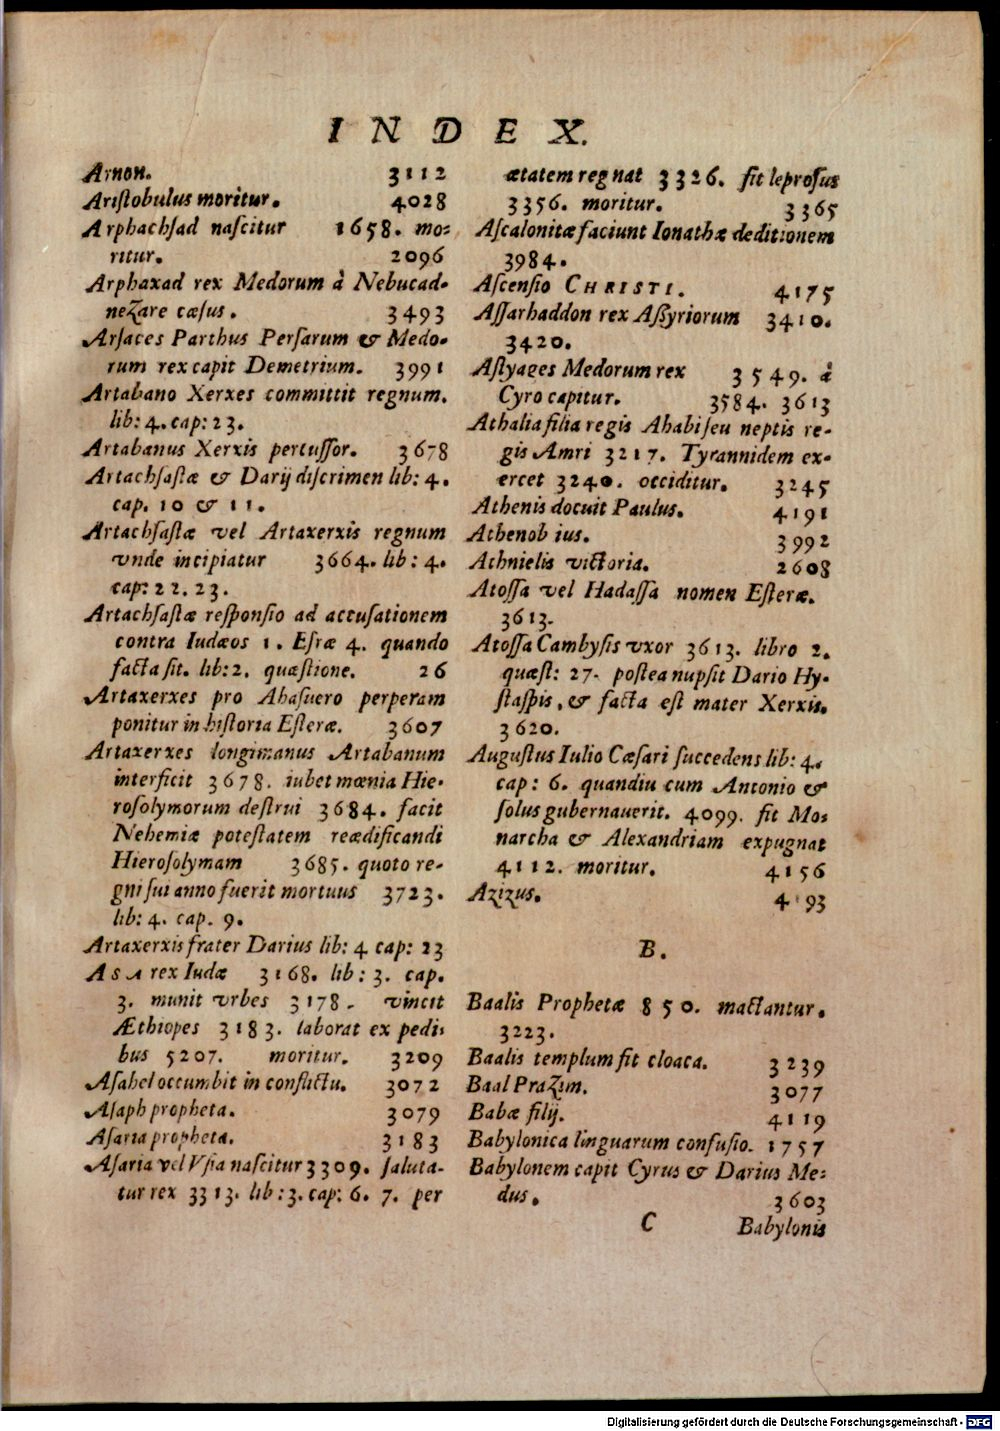 INDEX.
Arnon. 3112
Ariſtobulus moritur. 4028
Arphachſad naſcitur 1658. mo-
ritur. 2096
Arphaxad rex Medorum à Nebucad-
nezare cæſus. 3493
Arſaces Parthus Perſarum & Medo-
rum rex capit Demetrium. 3991
Artabano Xerxes committit regnum.
lib: 4. cap: 23.
Artabanus Xerxis percuſſor. 3678
Artachſaſtæ & Darij diſcrimen lib: 4.
cap. 10 & 11.
Artachſaſtæ vel Artaxerxis regnum
vnde incipiatur 3664. lib: 4.
cap: 22. 23.
Artachſaſtæ reſponſio ad accuſationem
contra Iudæos 1. Eſræ 4. quando
facta ſit. lib: 2. quæſtione. 26
Artaxerxes pro Ahaſuero perperam
ponitur in hiſtoria Eſteræ. 3607
Artaxerxes longimanus Artabanum
interficit 3678. iubet mœnia Hie-
roſolymorum deſtrui 3684. facit
Nehemiæ poteſtatem reædificandi
Hieroſolymam 3685. quoto re-
gni ſui anno fuerit mortuus 3723.
lib: 4. cap. 9.
Artaxerxis frater Darius lib: 4 cap: 23
ASA rex Iudæ 3168. lib: 3. cap.
3. munit vrbes 3178. vincit
Æthiopes 3183. laborat ex pedi-
bus 5207. moritur. 3209
Aſahel occumbit in conflictu. 3072
Aſaph propheta. 3079
Aſaria propheta. 3183
Aſaria vel Vſia naſcitur 3309. ſaluta-
tur rex 3313. lib: 3. cap: 6. 7. per
ætatem regnat 3326. fit leproſus
3356. moritur. 3365
Aſcalonitæ faciunt Ionathæ deditionem
3984.
Aſcenſio CHRISTI. 4175
Aſſarhaddon rex Aſſyriorum 3410.
3420.
Aſtyages Medorum rex 3549. à
Cyro capitur. 3584. 3613
Athalia filia regis Ahabi ſeu neptis re-
gis Amri 3217. Tyrannidem ex-
ercet 3240. occiditur. 3245
Athenis docuit Paulus. 4191
Athenob ius. 3992
Athnielis victoria. 2608
Atoſſa vel Hadaſſa nomen Eſteræ.
3613.
Atoſſa Cambyſis vxor 3613. libro 2.
quæſt: 27. poſtea nupſit Dario Hy-
ſtaſpis, & facta eſt mater Xerxis.
3620.
Auguſtus Iulio Cæſari ſuccedens lib: 4.
cap: 6. quandiu cum Antonio &
ſolus gubernauerit. 4099. fit Mo-
narcha & Alexandriam expugnat
4112. moritur. 4156
Azizus. 4193
B.
Baalis Prophetæ 850. mactantur.
3223.
Baalis templum fit cloaca. 3239
Baal Prazim. 3077
Babæ filij. 4119
Babylonica linguarum confuſio. 1757
Babylonem capit Cyrus & Darius Me-
dus. 3603
C Babylonis
Digitalisierung gefördert durch die Deutsche Forschungsgemeinschaft - DFG